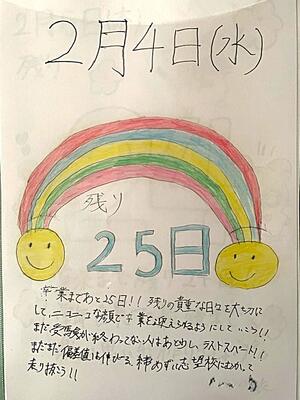 2月4日(水)
残り
25日
卒業まであと25日!! 残りの貴重な日々を大切に
して、ニコニコな顔で卒業を迎えるようにしていこう!!
まだ受験が終わってない人はあと少し、ラストスパート!!
まだまだ偏差値は伸びる、諦めずに志望校にむかって
走り抜こう!!